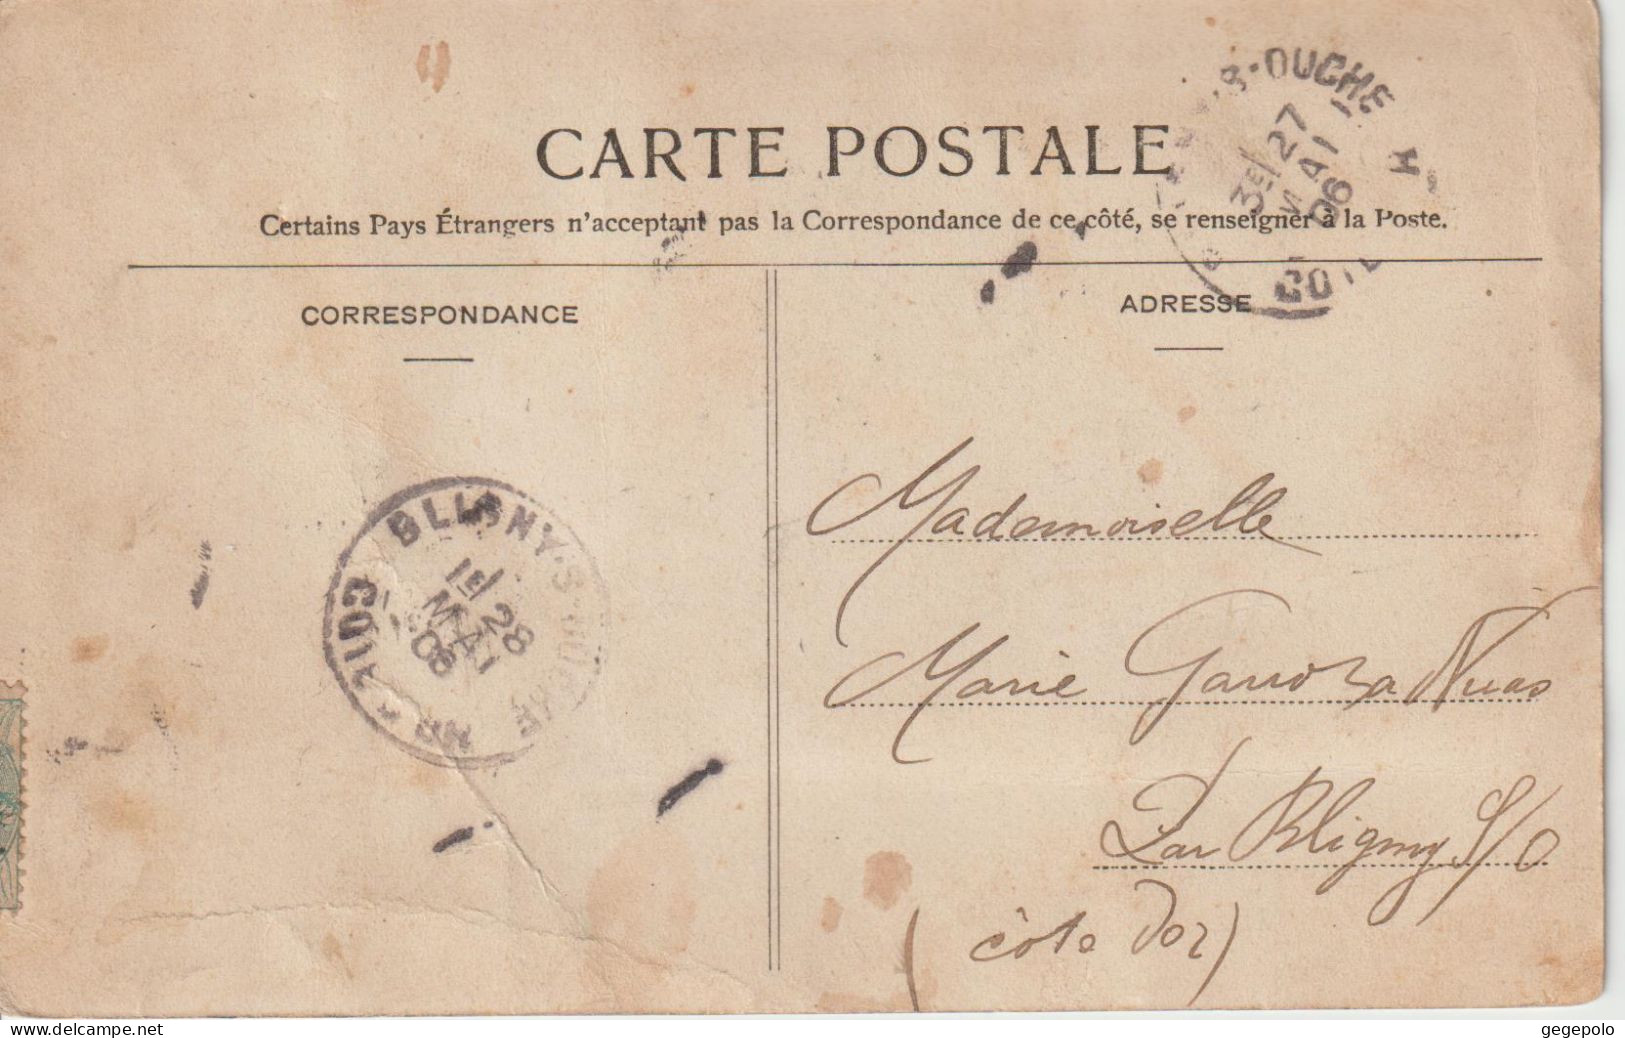 CARTE POSTALE
Certains Pays Étrangers n'acceptant pas la Correspondance de ce côté, se renseigner à la Poste.
CORRESPONDANCE
ADRESSE
R-OUCHE
3E/27
MAI
06
COTE
BLIGNY-S-OUCHE
1E/28
MAI
06
COTE
Mademoiselle
Marie
Par Bligny S/O
(côte d'or)
gegepolo